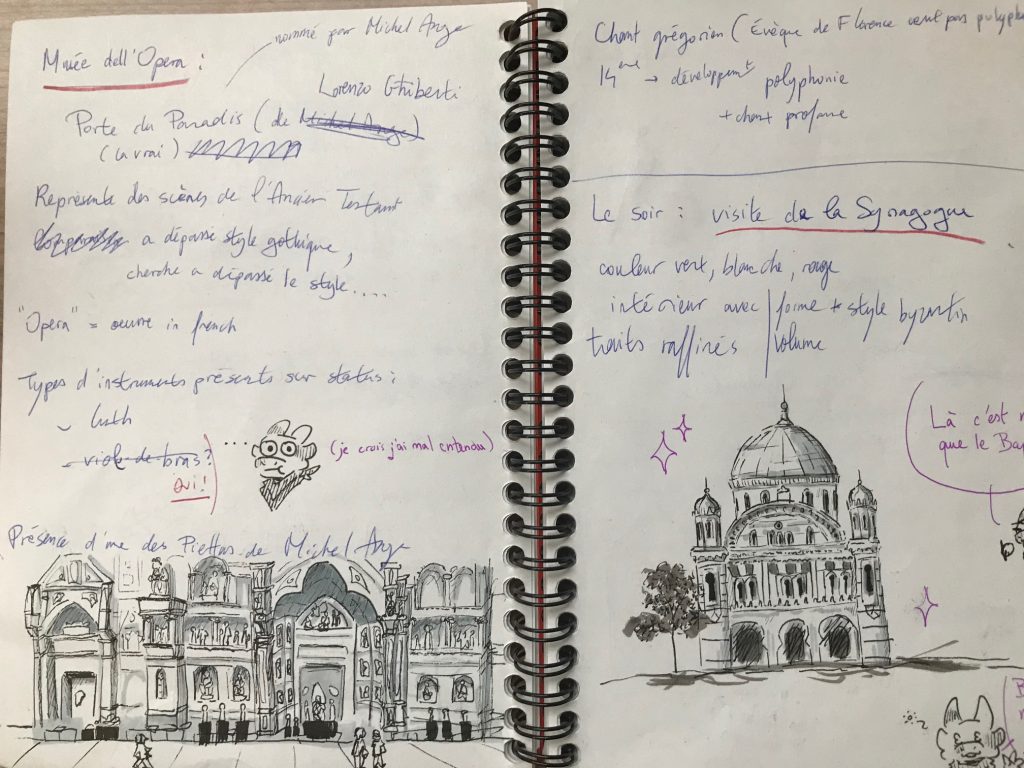 nommé par Michel Ange
Musée dell'Opera :
Lorenzo Ghiberti
Porte du Paradis (de Michel Ange)
(la vrai)
Représente des scènes de l'Ancien Testant
a dépassé style gothique,
cherche a dépassé le style....
"Opera" = oeuvre in french
Types d'instruments présents sur status :
- luth
- viole de bras ?
oui !
.... (je crois j'ai mal entendu)
Présence d'une des Piettas de Michel Ange
Chant grégorien (Évèque de Florence veut pas polypho
14eme → développemt polyphonie
+ chant profane
Le soir : visite de la Synagogue
couleur vert, blanche, rouge
intérieur avec forme + style byzantin
traits raffinés volume
Là c'est
que le Bap